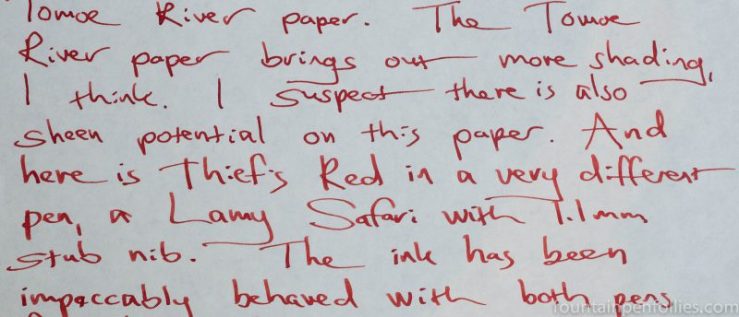 Tomoe River paper. The Tomoe
River paper brings out more shading,
I think. I suspect there is also
sheen potential on this paper. And
here is Thief's Red in a very different
pen, a Lamy Safari with 1.1mm
stub nib. The ink has been
impeccably behaved with both pens
fountainpenfollies.com